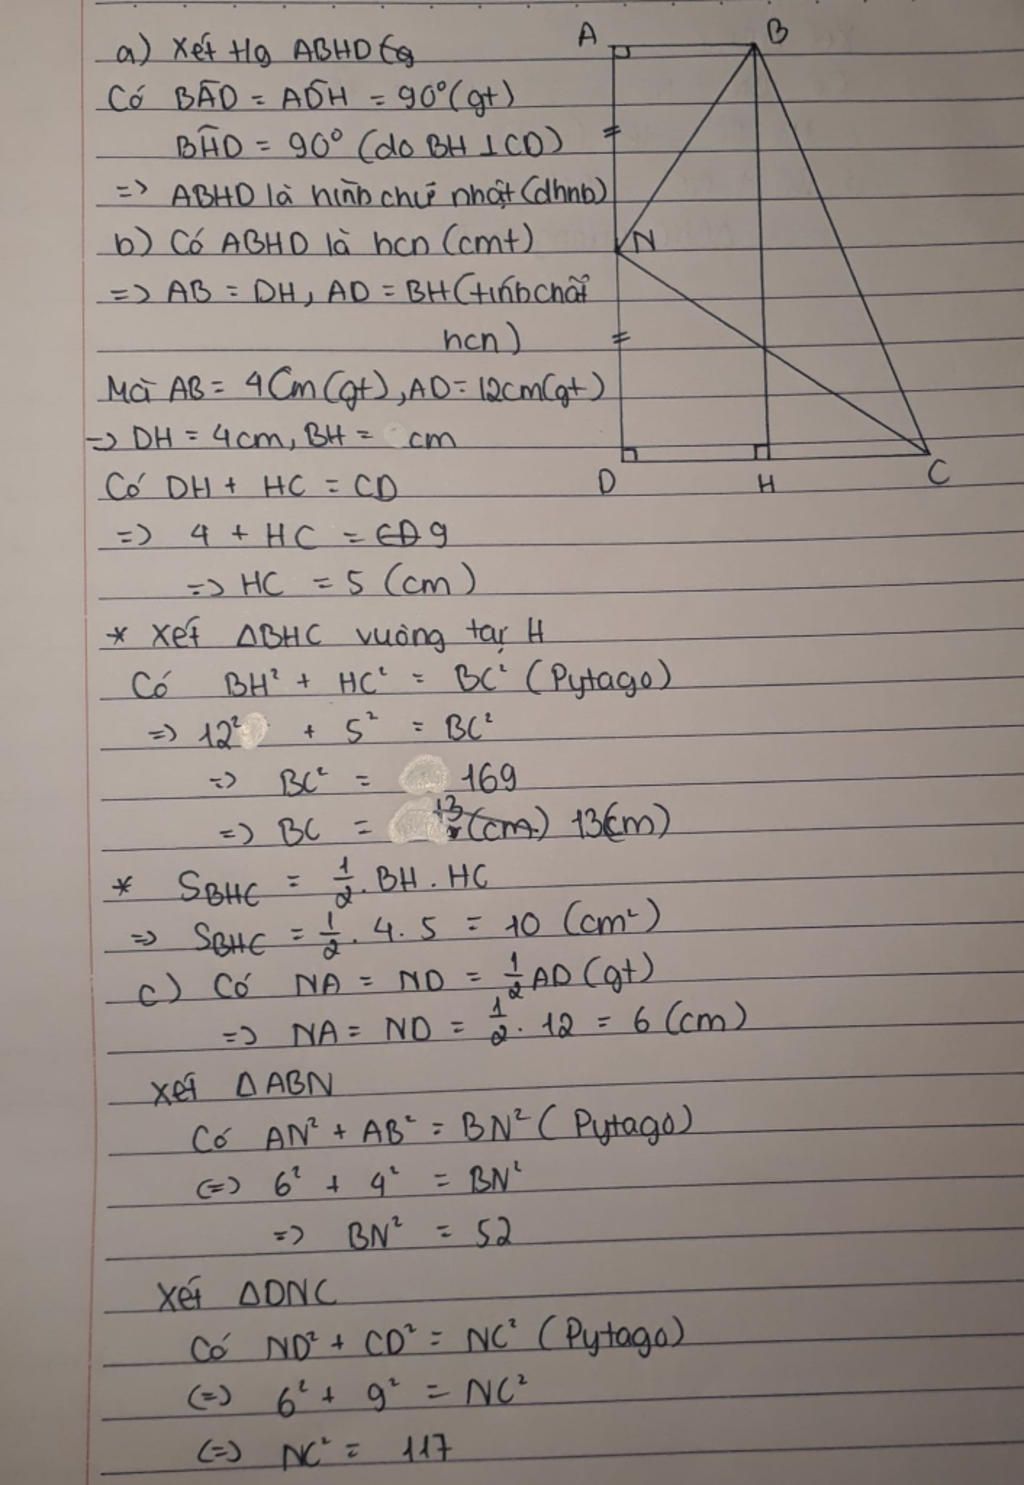 a) Xét tg ABHD tg
Có BÂD = AD̂H = 90° (gt)
BĤD = 90° (do BH ⊥ CD)
=> ABHD là hình chữ nhật (dhnb)
b) Có ABHD là hcn (cmt)
=> AB = DH, AD = BH (tính chất
hcn)
Mà AB = 4cm (gt), AD = 12cm (gt)
=> DH = 4cm, BH = cm
Có DH + HC = CD
=> 4 + HC = CD 9
=> HC = 5 (cm)
* Xét ΔBHC vuông tại H
Có BH² + HC² = BC² (Pytago)
=> 12² + 5² = BC²
=> BC² = 169
=> BC = 13 (cm) 13(cm)
* SBHC = 1/2 . BH . HC
=> SBHC = 1/2 . 4 . 5 = 10 (cm²)
c) Có NA = ND = 1/2 AD (gt)
=> NA = ND = 1/2 . 12 = 6 (cm)
Xét ΔABN
Có AN² + AB² = BN² (Pytago)
<=> 6² + 4² = BN²
=> BN² = 52
Xét ΔDNC
Có ND² + CD² = NC² (Pytago)
<=> 6² + 9² = NC²
<=> NC² = 117
A
B
N
D
H
C